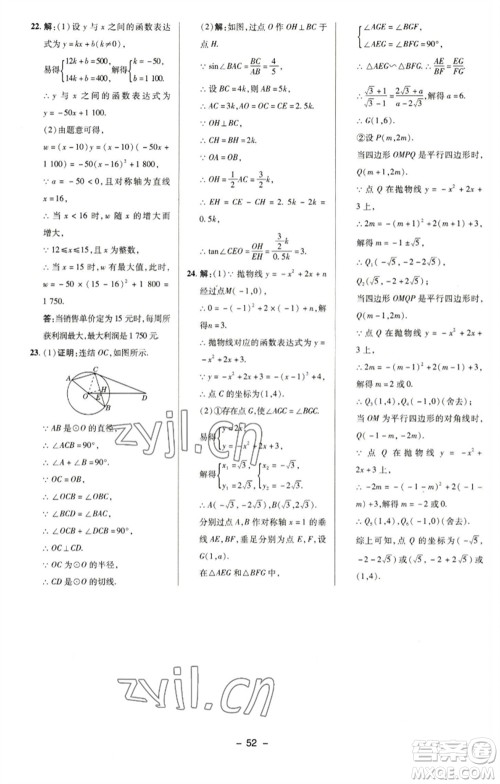 22. 解:(1)设 y 与 x 之间的函数表达
式为 y=kx+b(k≠0).
易得{12k+b=500, 14k+b=400, 解得{k=-50, b=1 100.
∴ y 与 x 之间的函数表达式为
y=-50x+1 100.
(2)由题意可得,
w=(x-10)y=(x-10)(-50x+
1 100)=-50(x-16)²+1 800.
∵ a=-50<0,且对称轴为直线
x=16,
∴ 当 x<16 时,w 随 x 的增大
而增大.
∵ 12≤x≤15,且 x 为整数,
∴ 当 x=15 时,w 有最大值,为
-50×(15-16)²+1 800=
1 750.
答:当销售单价为 15 元时,每周所
获利润最大,最大利润是 1 750 元.
23. (1)证明:连结 OC,如图所示.
C
A
O
E
H
D
B
∵ AB 为⊙O 的直径,
∴ ∠ACB=90°,
∴ ∠A+∠B=90°.
∵ OC=OB,
∴ ∠OCB=∠B.
∵ ∠BCD=∠A,
∴ ∠OCB+∠BCD=90°,
∴ OC⊥CD.
∵ OC 为⊙O 的半径,
∴ CD 为⊙O 的切线.
(2)过点 O 作 OH⊥BC 于
点 H.
∵ sin∠BAC=BC/AB=4/5,
∴ 设 BC=4k,AB=5k,
∴ AC=3k,AO=OC=2.5k.
∵ OH∥AC,
∵ OA=OB,
∴ OH=1/2 AC=3/2 k,CH=1/2 BC=2k,
∴ EH=CE-CH=2.5k-2k=
0.5k,
∴ tan∠CEO=OH/EH=(3/2 k)/(0.5k)=3.
24. 解:(1)∵ 抛物线 y=-x²+2x+n
经过点 M(-1,0),
∴ 0=-(-1)²+2×(-1)+n,解得
n=3,
∴ 抛物线对应的函数表达式为 y
=-x²+2x+3.
∵ y=-x²+2x+3=-(x-1)²+4,
∴ 点 C 的坐标为(1,4).
(2)①存在点 G,使得∠BGC=
∠AGC.
易得{y=2x, y=-x²+2x+3,
∴ {x₁=√3, y₁=2√3, {x₂=-√3, y₂=-2√3,
∴ A(√3,2√3),B(-√3,-2√3).
分别过点 A,B 作对称轴 x=1 的垂
线 AE,BF,垂足分别为点 E,F,设
G(1,a).
在△AEG 与△BFG 中,
{∠AGE=∠BGF, ∠AEG=∠BFG=90°,
∴ △AEG∽△BFG,∴ AE/BF=EG/FG,
∴ (√3-1)/(√3+1)=(a-2√3)/(2√3+a),解得 a=6,
∴ G(1,6).
②设 P(m,2m).
当四边形 OMPQ 是平行四边形时,
Q(m+1,2m).
∵ 点 Q 在抛物线 y=-x²+2x+3上,
∴ 2m=-(m+1)²+2(m+1)+3,
解得 m=-1±√5,
∴ Q₁(√5,-2+2√5),Q₂(-√5,
-2-2√5).
当四边形 OMQP 是平行四边形时,
Q(m-1,2m).
∵ 点 Q 在抛物线 y=-x²+2x+3上,
∴ 2m=-(m-1)²+2(m-1)+3,
解得 m=0 或 m=2,
当 OM 为平行四边形的对角线时,
∵ 点 Q 在抛物线 y=-x²+2x+3上,
综上可知,点 Q 的坐标为(-√5,
-2-2√5)或(√5,-2+2√5)或
(1,4).
zyjl.cn
zyjl.cn
- 52 -
答案圈
MXQE.COM